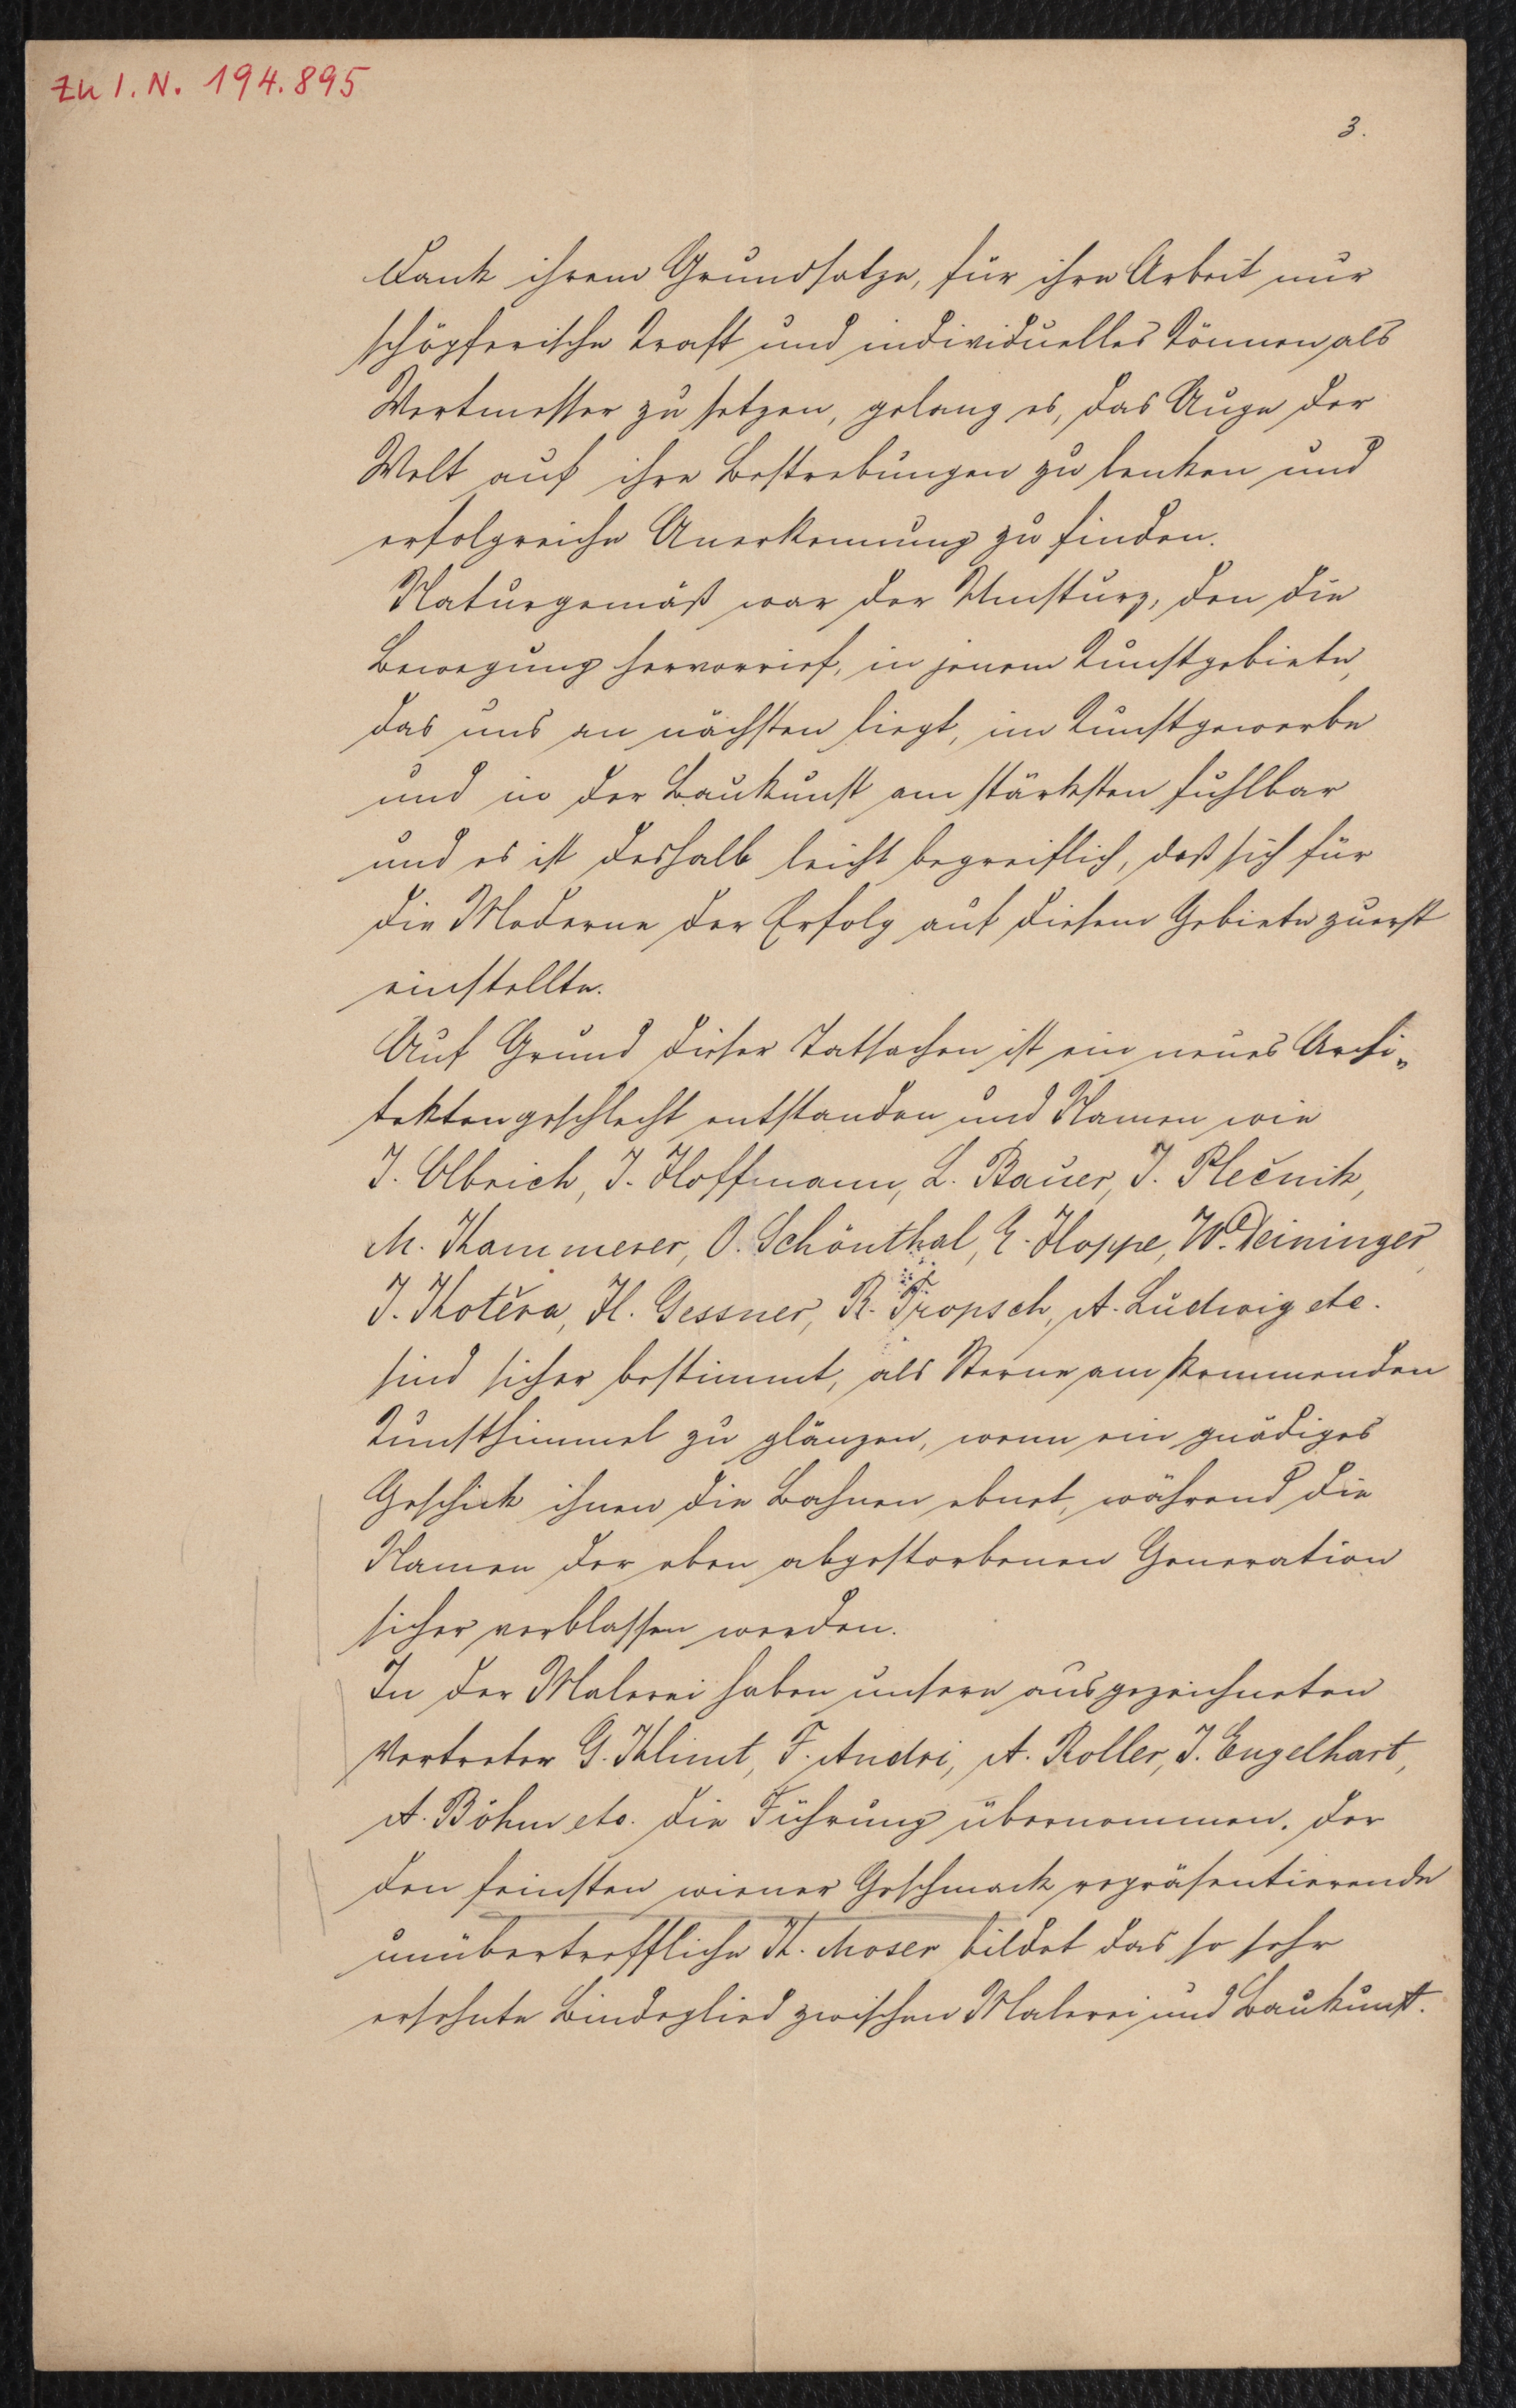 zu I. N. 194.895
3.
Dank ihrem Grundsatze, für ihre Arbeit nur
schöpferische Kraft und individuelles Können als
Wertmesser zu setzen, gelang es, das Auge der
Welt auf ihre Bestrebungen zu lenken und
erfolgreiche Anerkennung zu finden.
Naturgemäß war der Umsturz, den die
Bewegung hervorrief, in jenem Kunstgebiete,
das uns an nächsten liegt, im Kunstgewerbe
und in der Baukunst am stärksten fühlbar
und es ist deshalb leicht begreiflich, daß sich für
die Moderne der Erfolg auf diesem Gebiete zuerst
einstellte.
Auf Grund dieser Tatsachen ist ein neues Archi-
tektengeschlecht entstanden und Namen wie
J. Olbrich, J. Hoffmann, L. Bauer, J. Plečnik,
M. Kammerer, O. Schönthal, E. Hoppe, W. Deininger,
J. Kotěra, H. Gessner, R. Tropsch, A. Ludwig etc.
sind sicher bestimmt, als Sterne am kommenden
Kunsthimmel zu glänzen, wenn ein gnädiges
Geschick ihnen die Bahnen ebnet, während die
Namen der eben abgestorbenen Generation
sicher verblassen werden.
In der Malerei haben unsere ausgezeichneten
Vertreter G. Klimt, F. Andri, A. Roller, J. Engelhart,
A. Böhm etc. die Führung übernommen. Der
den feinsten wiener Geschmack repräsentierende
unübertreffliche K. Moser bildet das so sehr
ersehnte Bindeglied zwischen Malerei und Baukunst.